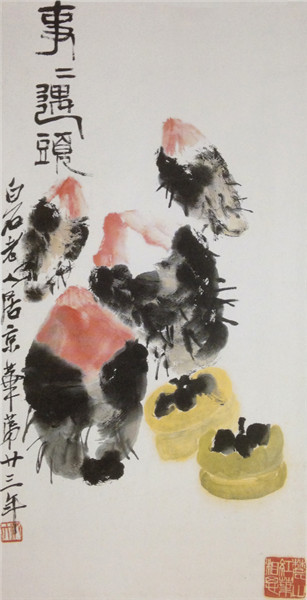 事〻遇頭
白石老人居京華第廿三年